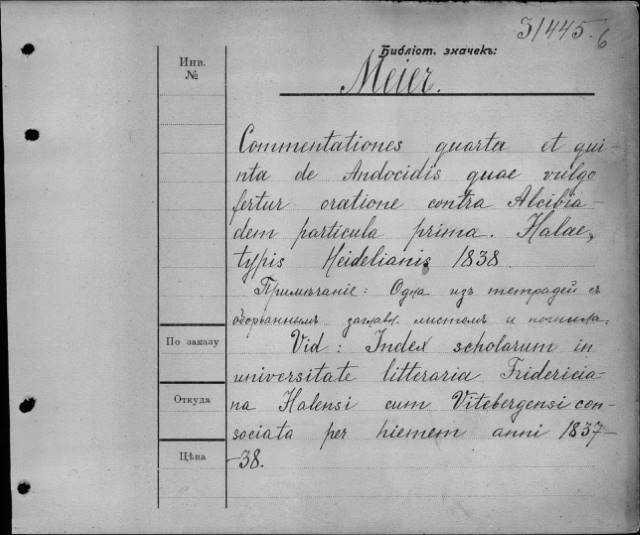 31445.6
Библіот. значекъ:
Инв.
№
Meier.
Commentationes quarta et qui-
nta de Andocidis quae vulgo
fertur oratione contra Alcibia-
dem particula prima. Halae,
typis Heidelianis 1838
Примѣчаніе: Одна изъ тетрадей съ
оборваннымъ заглавн. листомъ и
По заказу
Vid: Index scholarum in
universitate litteraria Fridericia-
Откуда
na Halensi cum Vitebergensi con-
sociata per hiemem anni 1837-
Цѣна
-38.